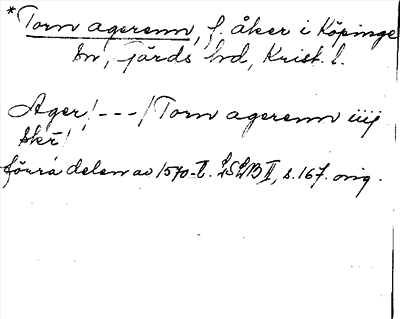 *Torn agerenn, f. åker i Köpinge
sn, Gärds hd, Krist. l.
Ager/---/Torn agerenn iiij
skr/
förra delen av 1570-t. LSLB II, s. 167. orig.